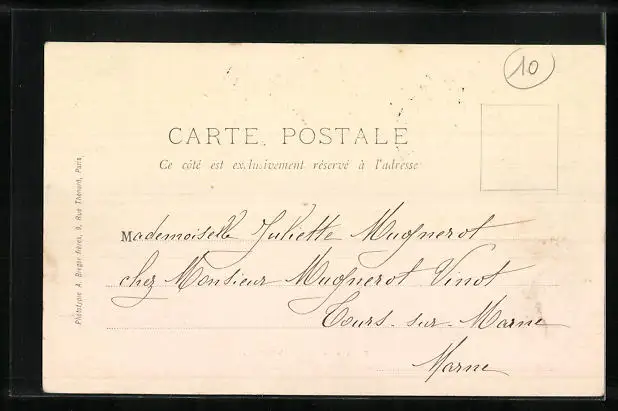 10
CARTE POSTALE
Ce côté est exclusivement réservé à l'adresse
Mademoiselle Juliette Mugnerot
chez Monsieur Mugnerot Vinot
Tours-sur-Marne
Marne
Phototypie A. Breger frères, 9, Rue Thénard, Paris